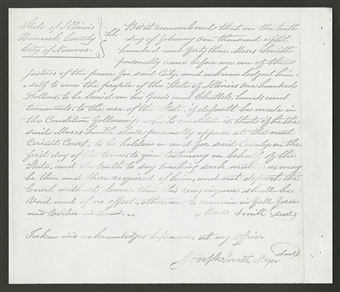 State of Illinois
Hancock County } ss. Be it remembered that on the tenth
City of Nauvoo. day of January one thousand eight
hundred and forty three Moses Smith
personally came before me one of the
justices of the peace for said City, and acknowledged him-
self to owe the people of the State of Illinois one hundred
Dollars, to be levied on his Goods and Chattels, lands and
tenements, to the use of the State, if default be made in
the Condition following, which Condition is, that if he the
said Moses Smith shall personally appear at the next
Circuit Court, to be holden in and for said County, on the
first day of the term, to give testimony on behalf of the
State, and to touching such matter as may
be then and there required of him, and not depart the
Court without leave, then this recognizance shall be
Void and of no effect, otherwise to remain in full force
and Virtue in Law.
Moses Smith seal
Taken and acknowledged before me, at my office
Joseph Smith Mayor seal